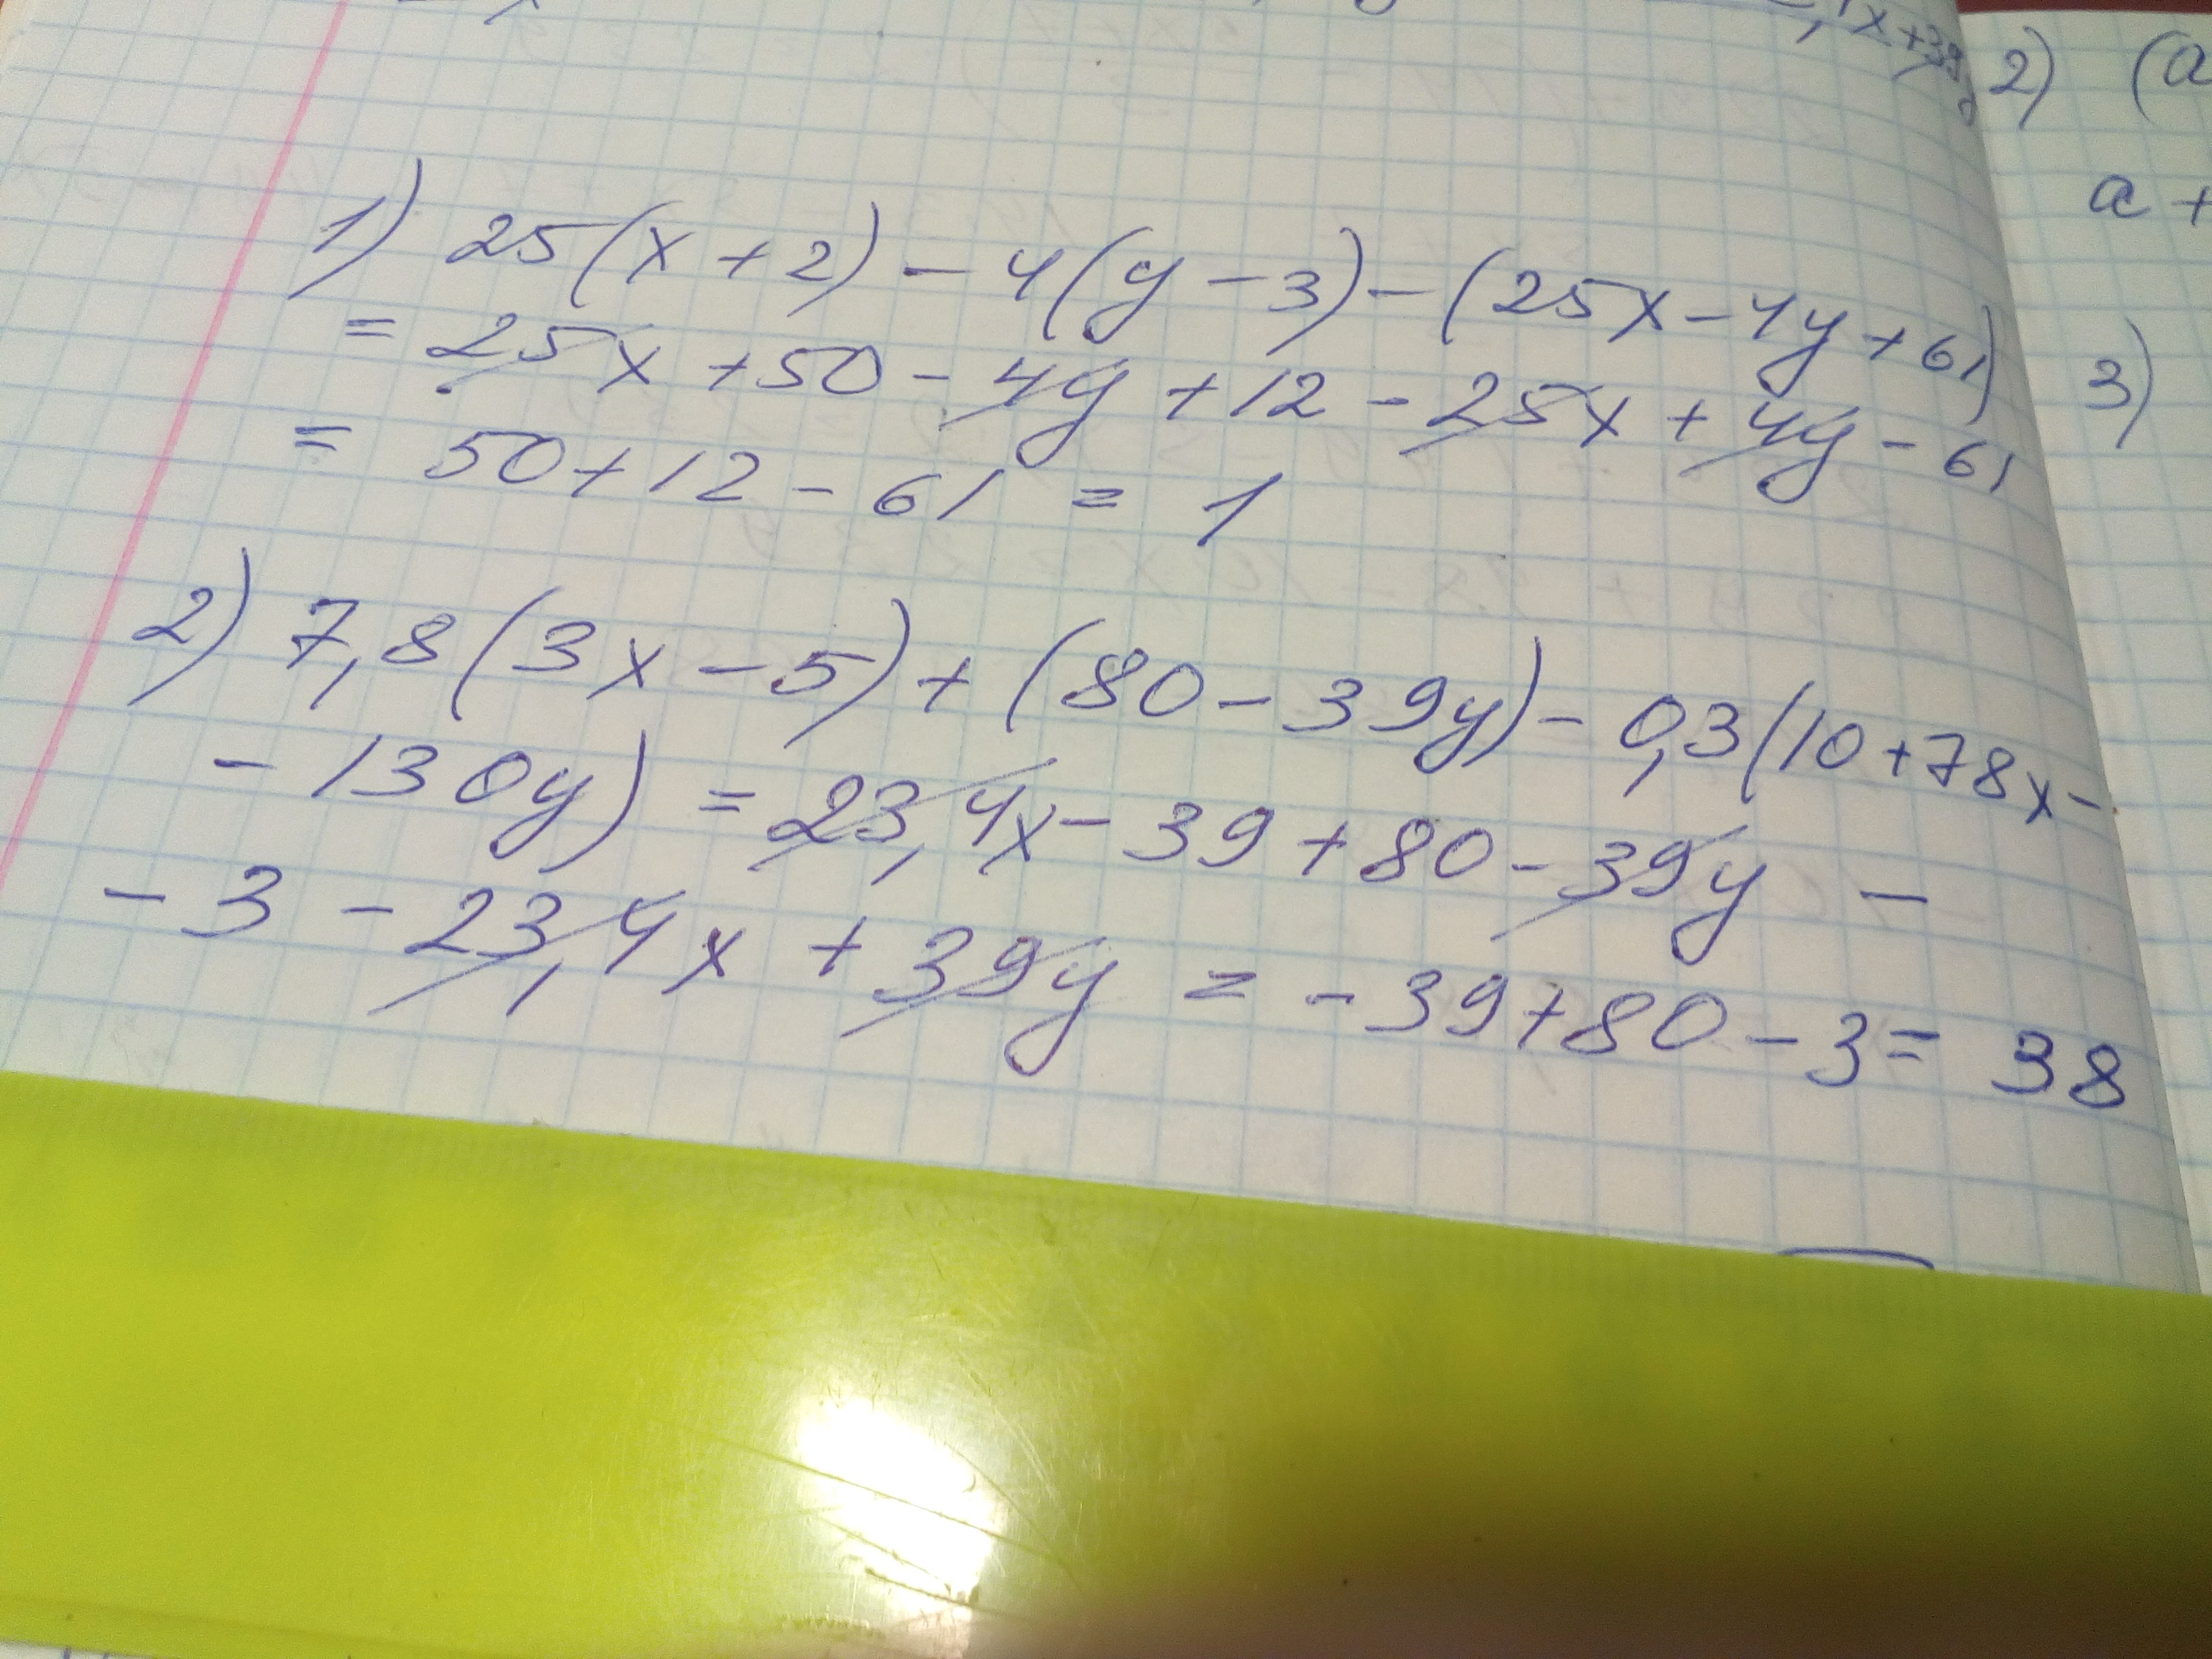 x+39
2) (a
a +
3)
1) 25(x+2)-4(y-3)-(25x-4y+61)
= 25x+50-4y+12-25x+4y-61
= 50+12-61 = 1
2) 7,8(3x-5)+(80-39y)-0,3(10+78x-
-130y) = 23,4x-39+80-39y -
-3 -23,4x +39y = -39+80-3= 38